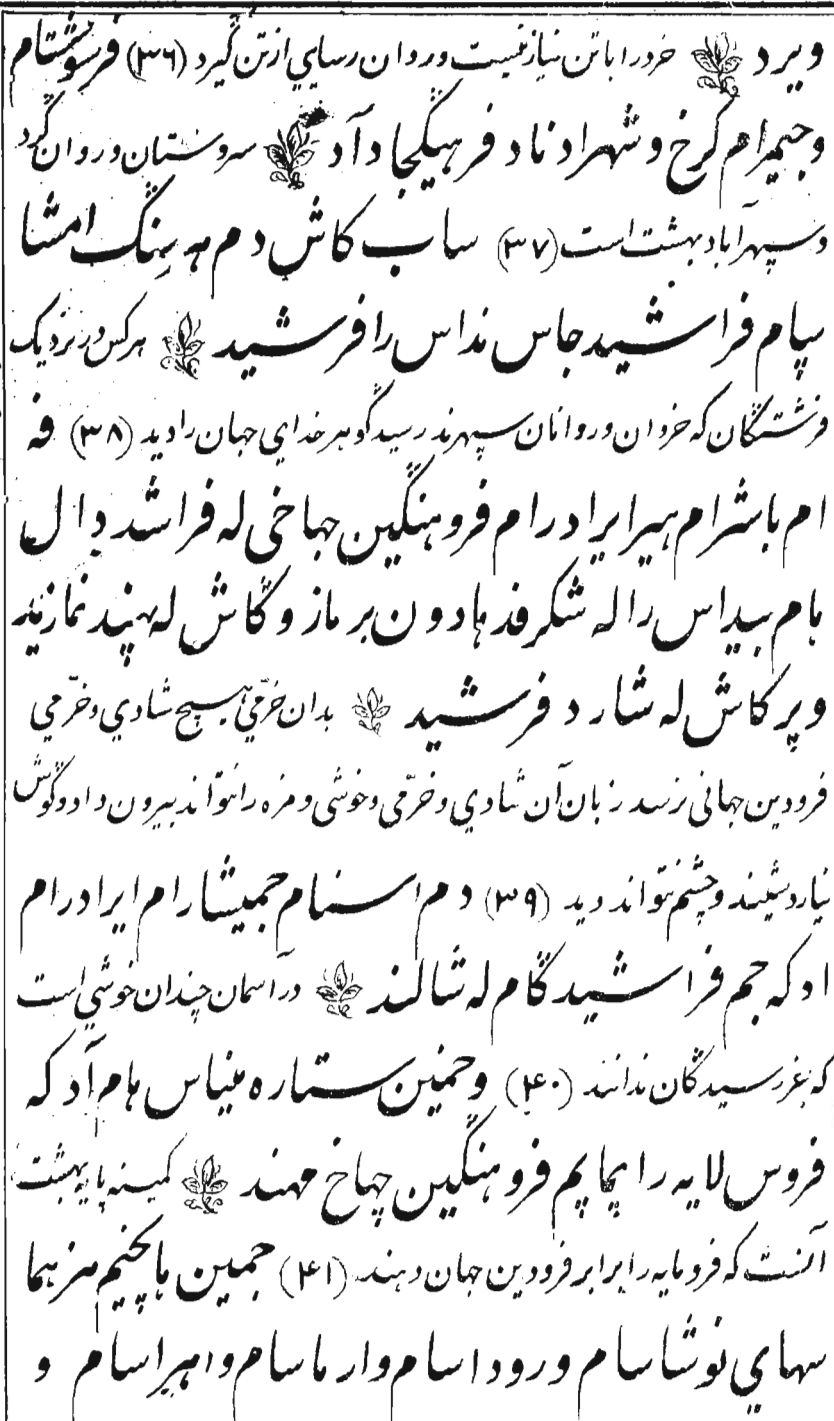 ویرد خرد را با تن نیاز نیست و روان رسایی از تن گیرد (۳۶) فرسوشتام
و جیمرام کرخ و شهرادناد فرهیگجاد آد سروشستان و روان گرد
و سپهر آباد بهشت است (۳۷) ساب کاش دم هدینگ امشا
سپام فراشید جاس نداس را فرشید هر کس در نزدیک
فرشتگان که خردان و روانان سپهرند رسید گوهر خدای جهان را دید (۳۸) فه
ام باشرام هیرا یرادرام فروهنگین جهاخی له فراشد دال
بام بیداس را له شکرفد هادون برماز و کاش له پیند نمازید
و پرکاش له شارد فرشید بدان خرّمی هیچ شادی و خرّمی
فرودین جهانی نرسد زبان آن شادی و خرّمی و خوشی و مزه را نتواند بیرون داد و گوش
نیارد شنید و چشم نتواند دید (۳۹) دم اسنام جمیشارام ایرادرام
اد که جم فراشیدگام له شالند در آسمان چندان خوشی است
که بغر رسیدگان ندانند (۴۰) و حمنین ستاره میناس هام آد که
فروس لایه را پماپم فروهنگین جهاخ مهند کمینه پایه بهشت
آنست که فرومایه را برابر فرودین جهان دهند (۴۱) جمین هاپخنیم هنر هما
سهای نوشاسام و روداسام و ارماسام و اهیراسام و